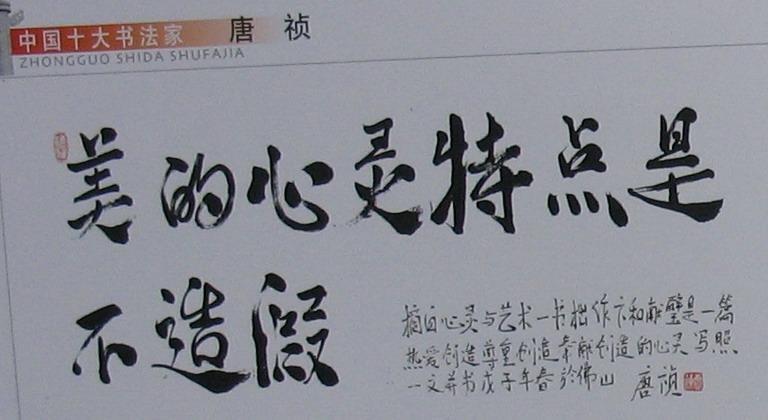 中国十大书法家 唐祯
ZHONGGUO SHIDA SHUFAJIA
美的心灵特点是
不造假
摘自心灵与艺术一书拙作卞和献璧是一篇
热爱创造尊重创造奉献创造的心灵写照
一文并书戊子年春於佛山 唐祯